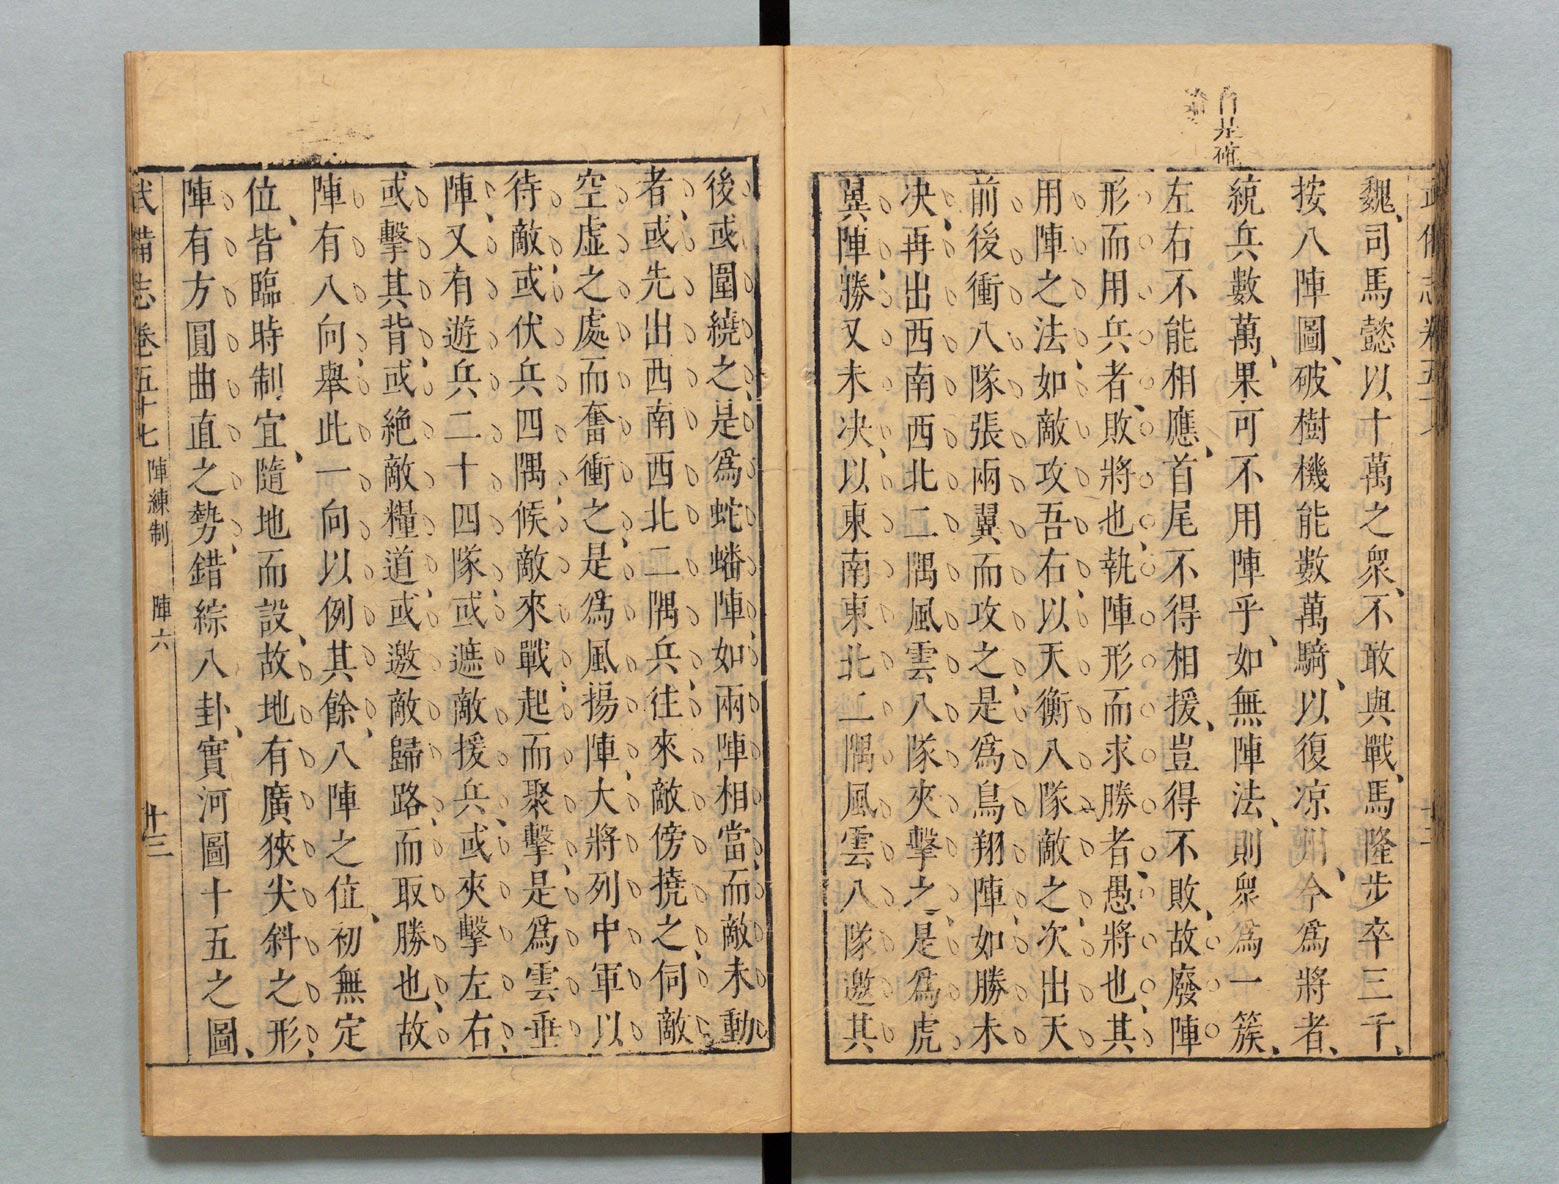 魏、司馬懿以十萬之衆、不敢與戰、馬隆步卒三千、
按八陣圖、破樹機能數萬騎、以復凉州、今爲將者、
統兵數萬、果可不用陣乎、如無陣法、則衆爲一簇、
左右不能相應、首尾不得相援、豈得不敗、故廢陣
形而用兵者、敗將也、執陣形而求勝者、愚將也、其
用陣之法、如敵攻吾右、以天衡八隊敵之、次出天
前後衝八隊、張兩翼而攻之、是爲鳥翔陣、如勝未
决、再出西南西北二隅風雲八隊夾擊之、是爲虎
翼陣、勝又未决、以東南東北二隅風雲八隊邀其
後、或圍繞之、是爲蛇蟠陣、如兩陣相當、而敵未動
者、或先出西南西北二隅兵、往來敵傍撓之、伺敵
空虛之處而奮衝之、是爲風揚陣、大將列中軍以
待敵、或伏兵四隅、候敵來戰、起而聚擊、是爲雲垂
陣、又有遊兵二十四隊、或遮敵援兵、或夾擊左右、
或擊其背、或絶敵糧道、或邀敵歸路、而取勝也、故
陣有八向、舉此一向以例其餘、八陣之位、初無定
位、皆臨時制宜、隨地而設、故地有廣狹尖斜之形、
陣有方圓曲直之勢、錯綜八卦、實河圖十五之圖、
武備志卷五十七 陣練制 陣六 廿三